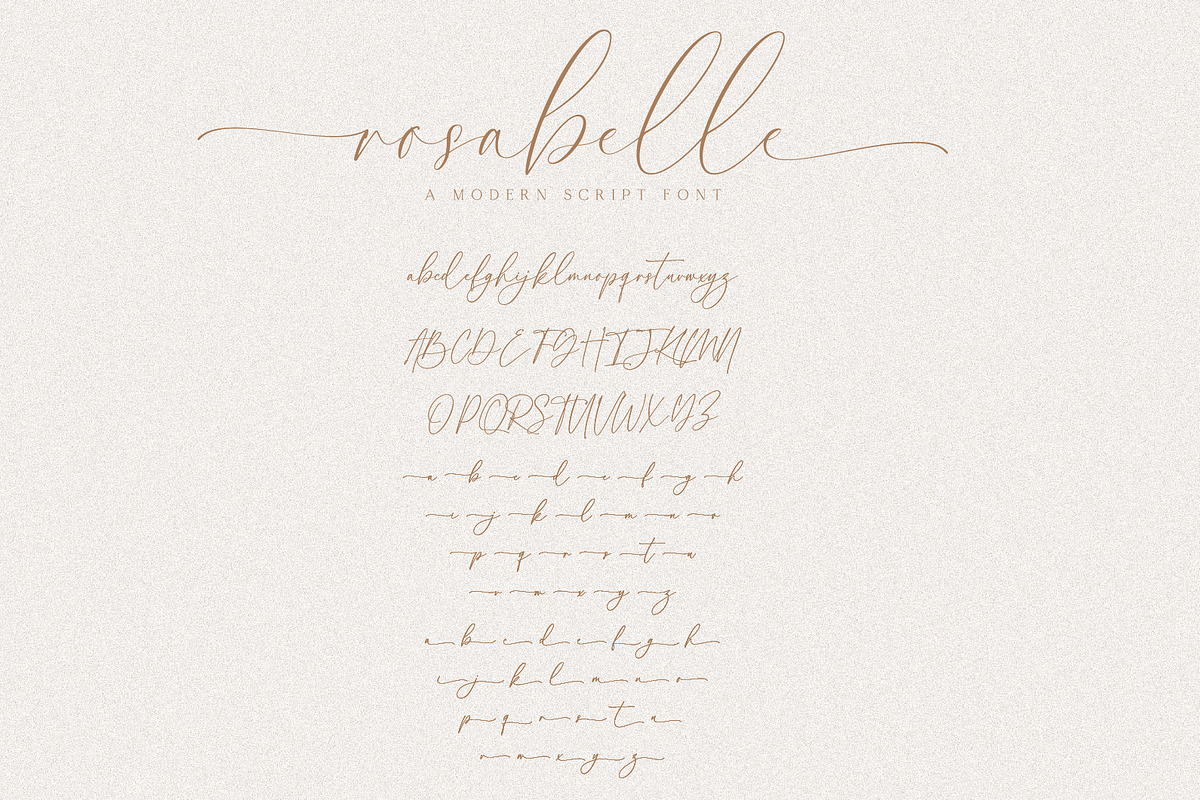 rosabelle
A MODERN SCRIPT FONT
abcdefghijklmnopqrstuvwxyz
ABCDEFGHIJKLMN
OPQRSTUVWXYZ
a b c d e f g h
i j k l m n o
p q r s t u
v w x y z
a b c d e f g h
i j k l m n o
p q r s t u
v w x y z